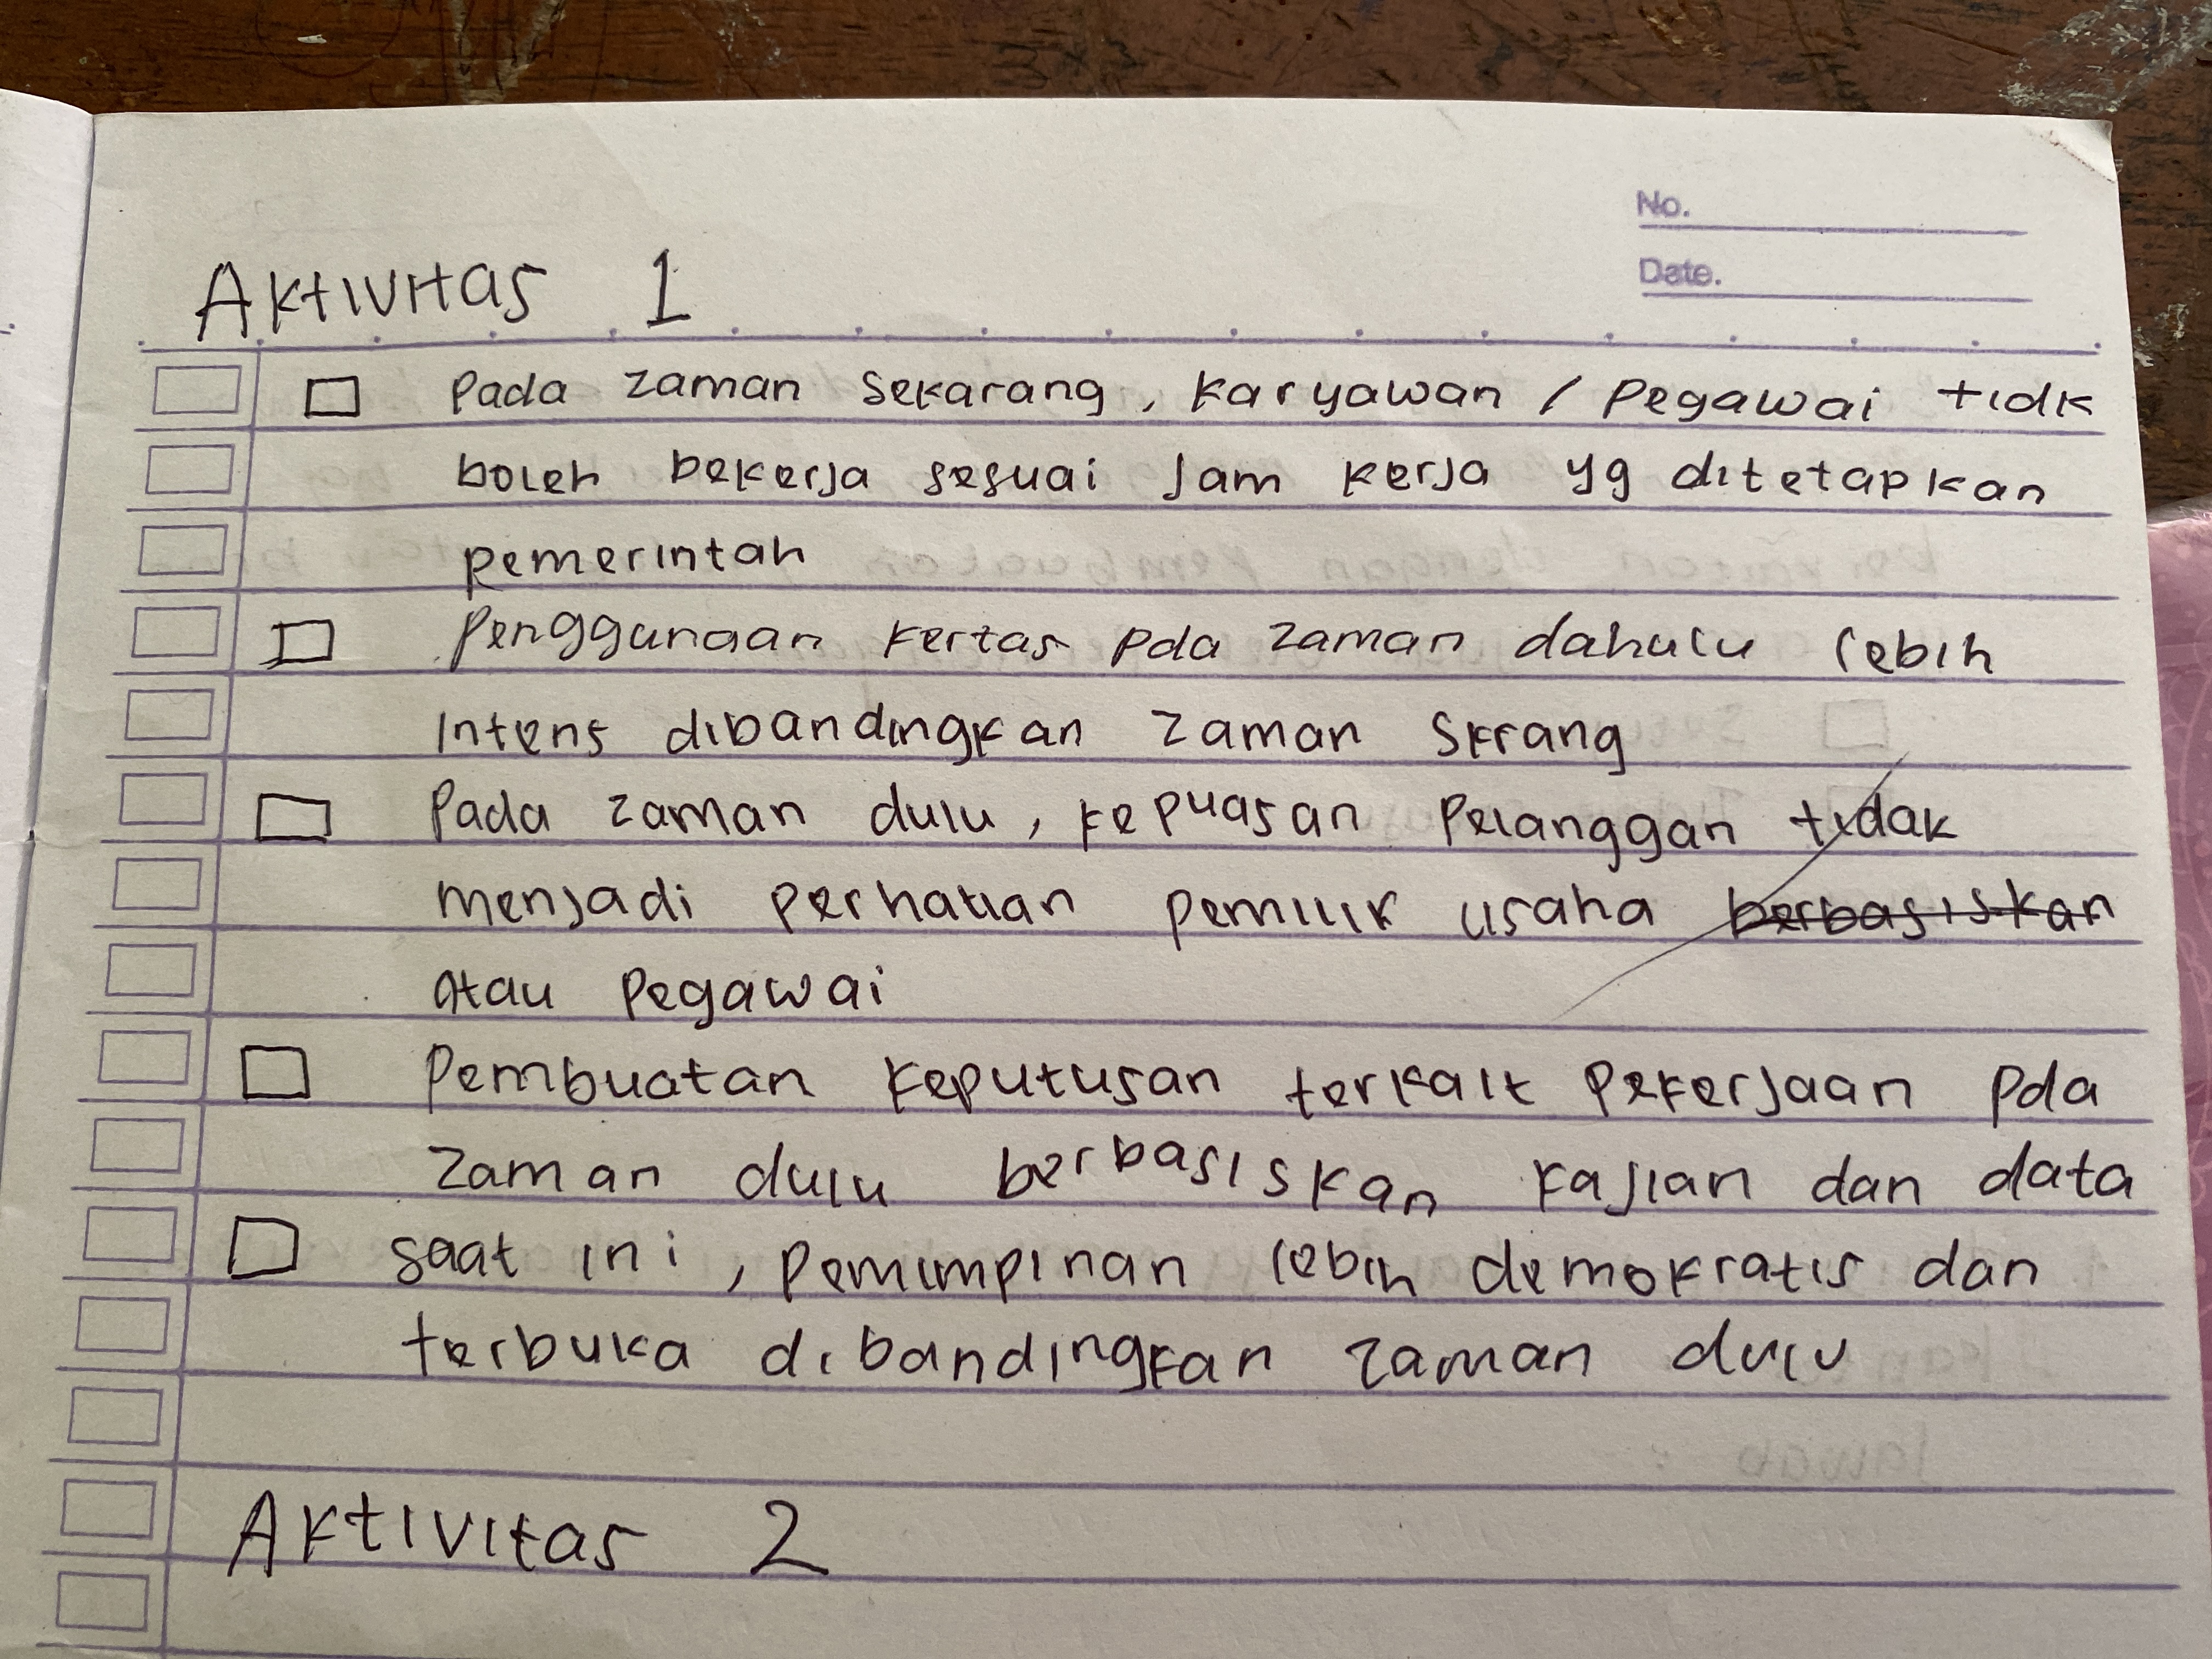 No.
Date.
Aktivitas 1
Pada zaman sekarang, karyawan / pegawai tidk
boleh bekerja sesuai jam kerja yg ditetapkan
pemerintah
Penggunaan kertas pda zaman dahulu lebih
Intens dibandingkan zaman Skrang
Pada zaman dulu, kepuasan pelanggan tidak
menjadi perhatian pemilik usaha berbasiskan
atau pegawai
Pembuatan keputusan terkait pekerjaan pda
zaman dulu berbasiskan kajian dan data
saat ini, pemimpinan lebih demokratis dan
terbuka dibandingkan zaman dulu
Aktivitas 2